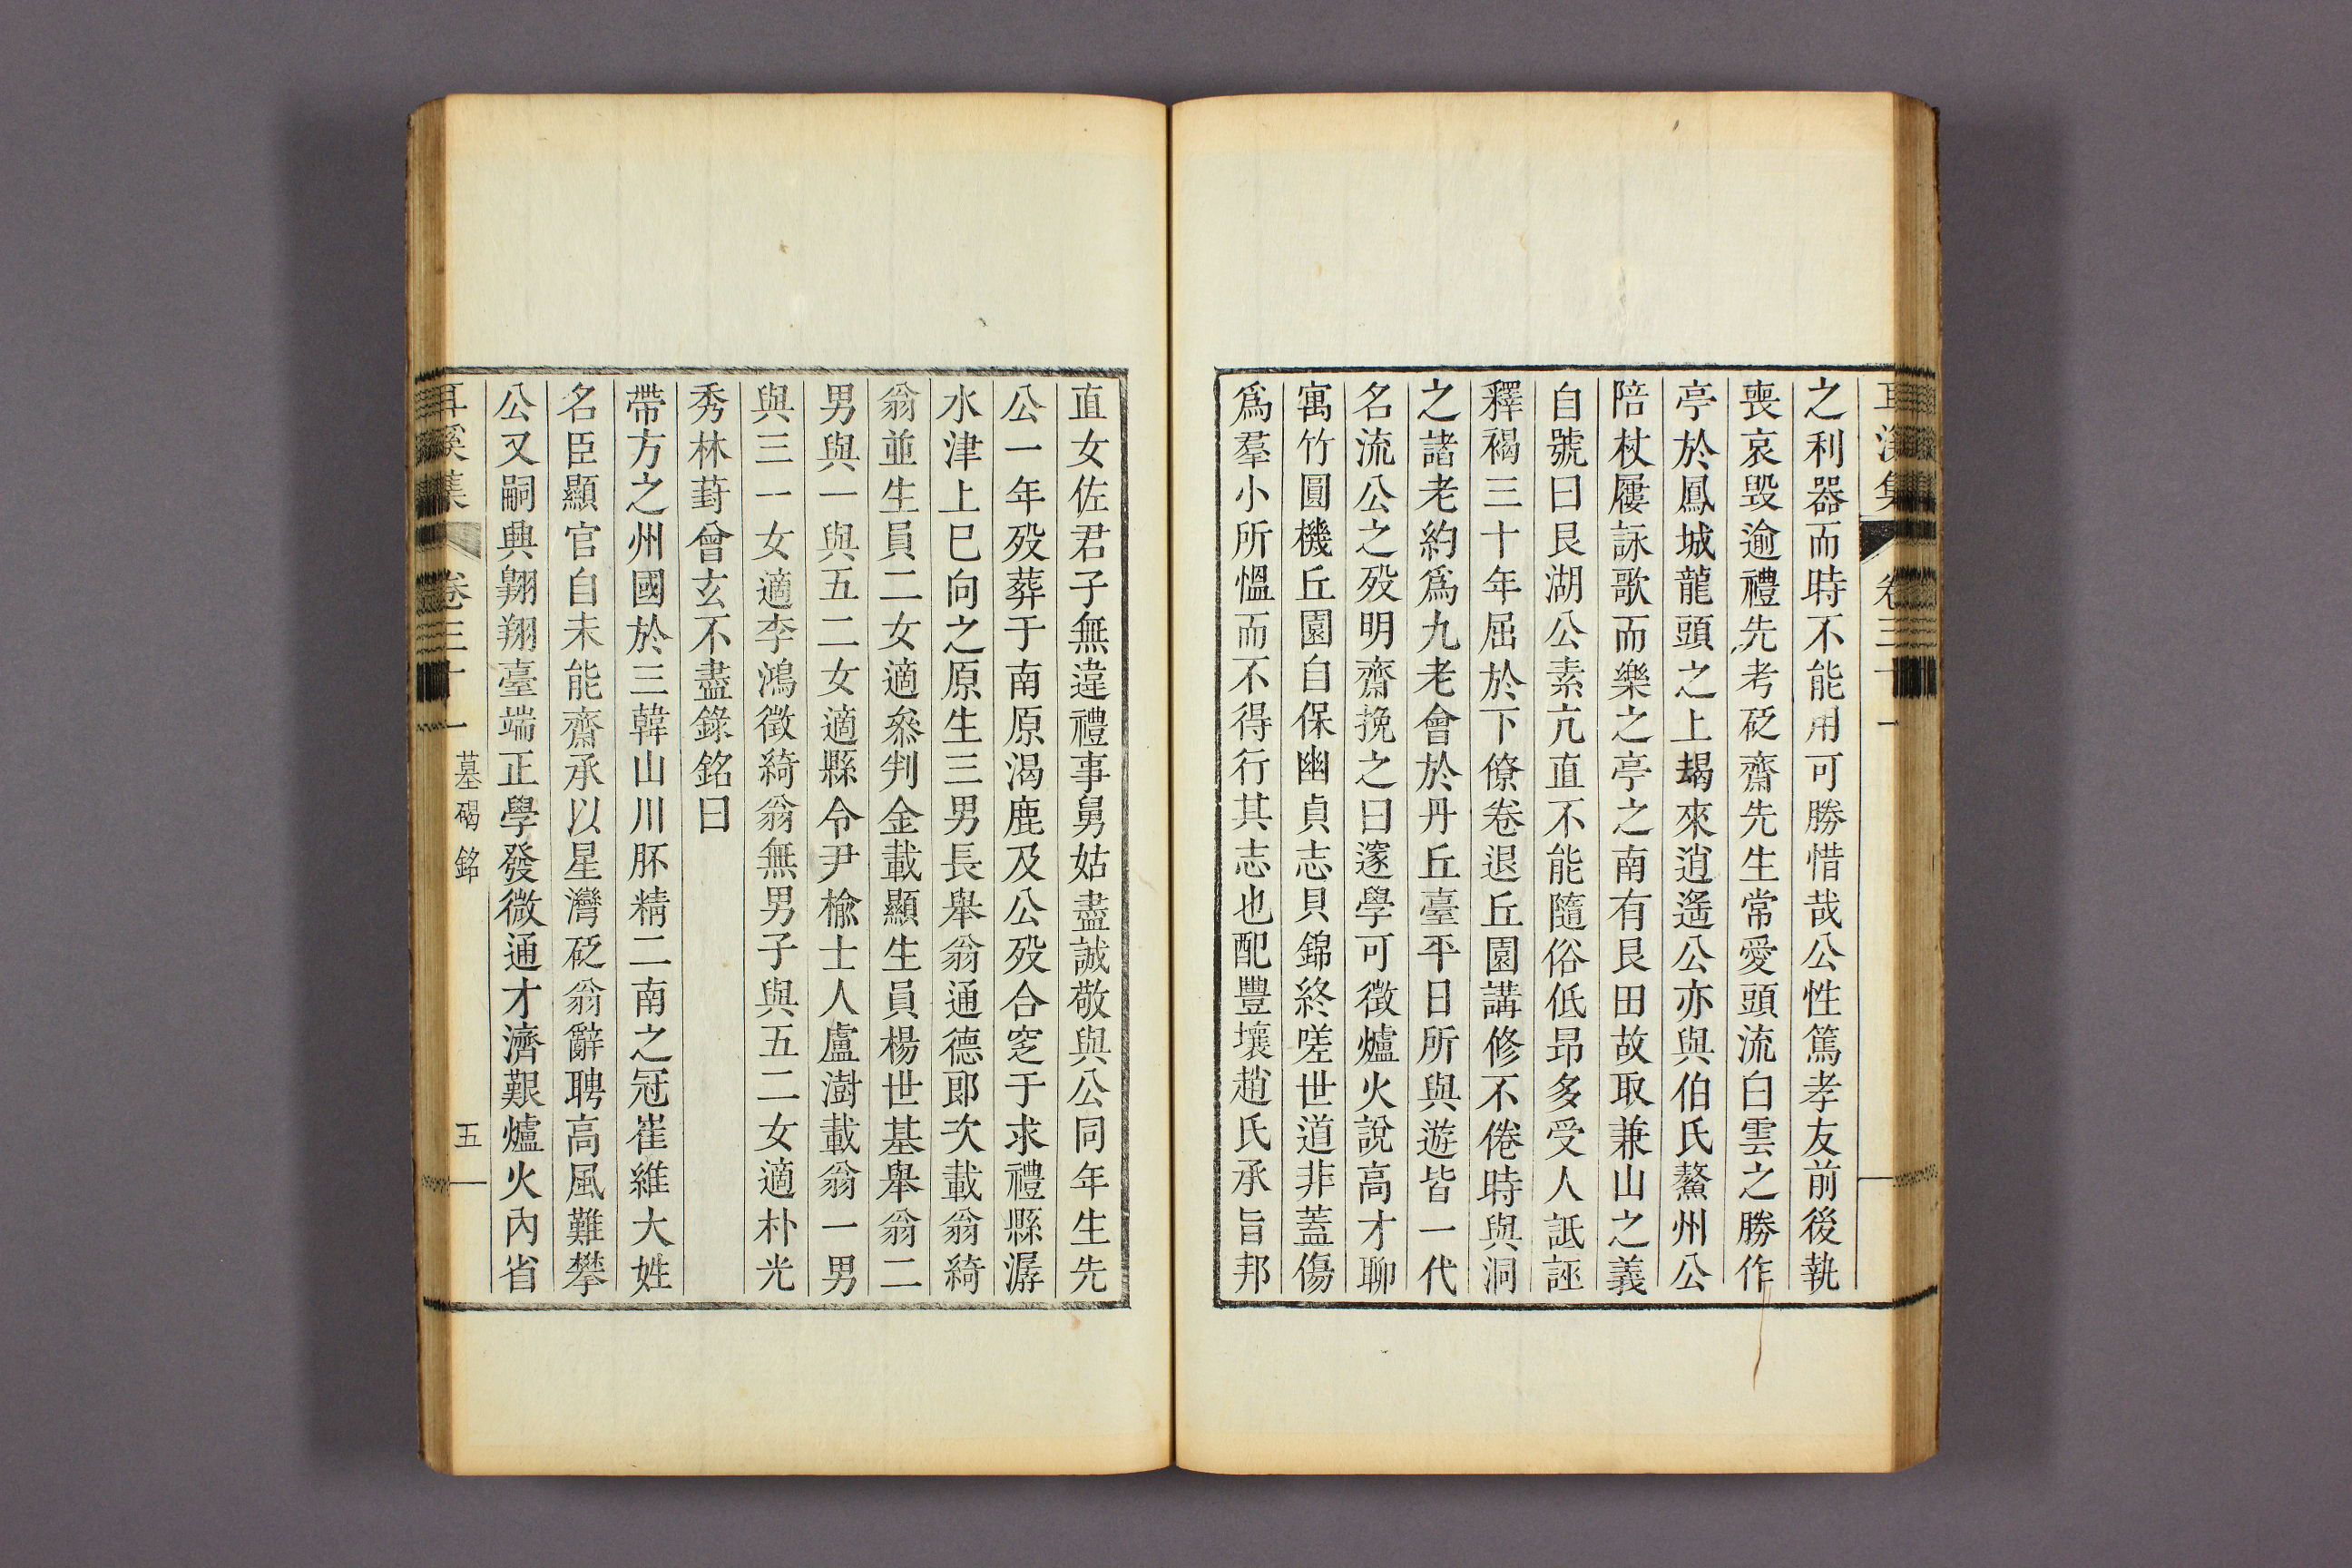 之利器而時不能用可勝惜哉公性篤孝友前後執
喪哀毀逾禮先考砭齋先生常愛頭流白雲之勝作
亭於鳳城龍頭之上朅來逍遙公亦與伯氏鰲州公
陪杖屨詠歌而樂之亭之南有艮田故取兼山之義
自號曰艮湖公素亢直不能隨俗低昂多受人詆誣
釋褐三十年屈於下僚卷退丘園講修不倦時與洞
之諸老約爲九老會於丹丘臺平日所與遊皆一代
名流公之歿明齋挽之曰邃學可徵爐火說高才聊
寓竹圓機丘園自保幽貞志貝錦終嗟世道非蓋傷
爲羣小所慍而不得行其志也配豐壤趙氏承旨邦
直女佐君子無違禮事舅姑盡誠敬與公同年生先
公一年歿葬于南原渴鹿及公歿合窆于求禮縣潺
水津上巳向之原生三男長舉翁通德郎次載翁綺
翁並生員二女適叅判金載顯生員楊世基舉翁二
男與一與五二女適縣令尹楡士人盧澍載翁一男
與三一女適李鴻徵綺翁無男子與五二女適朴光
秀林葑曾玄不盡錄銘曰
帶方之州國於三韓山川胚精二南之冠崔維大姓
名臣顯官自未能齋承以星灣砭翁辭聘高風難攀
公又嗣興翺翔臺端正學發微通才濟艱爐火內省
耳溪集 卷三十一 墓碣銘 五